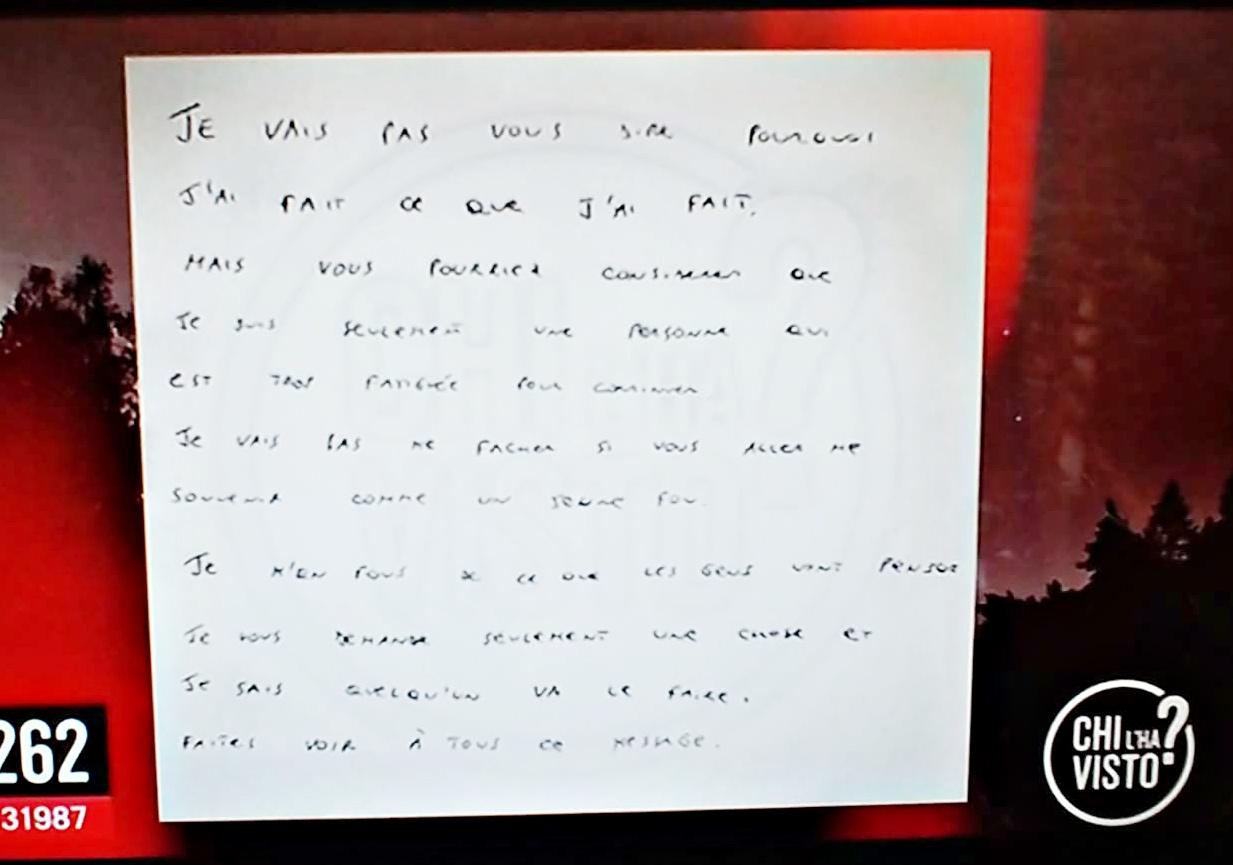 JE VAIS PAS VOUS DIRE POURQUOI
J'AI FAIT CE QUE J'AI FAIT.
MAIS VOUS POURRIEZ CONSIDERER QUE
JE SUIS SEULEMENT UNE PERSONNE QUI
EST TROP FATIGUÉE POUR CONTINUER
JE VAIS PAS ME FACHER SI VOUS ALLER ME
SOUVENIR COMME UN JEUNE FOU.
JE M'EN FOUS DE CE QUE LES GENS VONT PENSER
JE VOUS DEMANDE SEULEMENT UNE CHOSE ET
JE SAIS QUELQU'UN VA LE FAIRE.
FAITES VOIR À TOUS CE MESSAGE.
262
31987
CHI L'HA
VISTO?